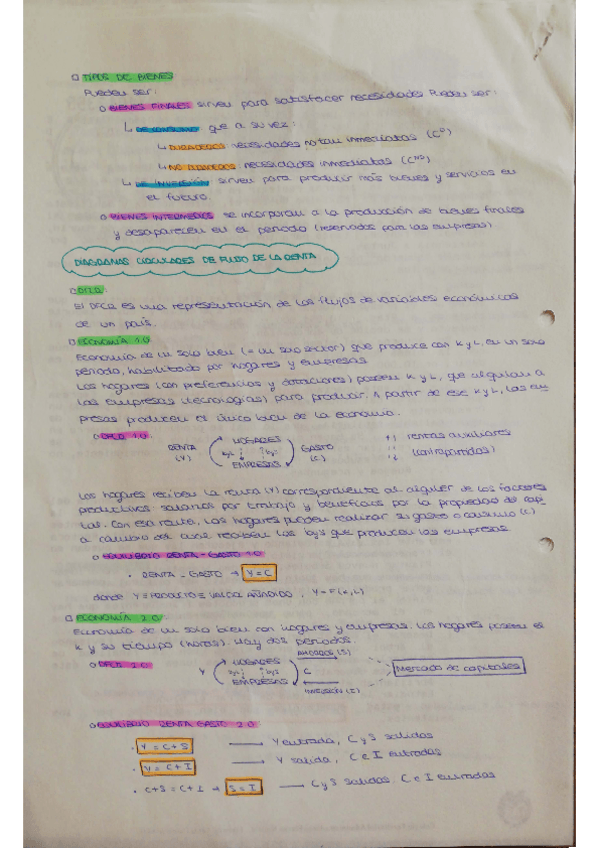 TIPOS DE BIENES
Pueden ser:
BIENES FINALES sirven para satisfacer necesidades. Pueden ser:
DE CONSUMO que a su vez:
DURADEROS necesidades no tan inmediatas (C^D)
NO DURADEROS necesidades inmediatas (C^ND)
DE INVERSIÓN sirven para producir más bienes y servicios en
el futuro.
BIENES INTERMEDIOS se incorporan a la producción de bienes finales
y desaparecen en el periodo (reservados para las empresas)
DIAGRAMAS CIRCULARES DE FLUJO DE LA RENTA
DFCR:
El DFCR es una representación de los flujos de variables económicas
de un país.
ECONOMÍA 1.0
Economía de un solo bien (= un solo sector) que produce con K y L, en un solo
periodo, habilitado por hogares y empresas.
Los hogares (con preferencias y dotaciones) poseen K y L, que alquilan a
las empresas (tecnologías) para producir. A partir de ese K y L, las em-
presas producen el único bien de la economía.
DFCR 1.0:
HOGARES
RENTA (Y)
GASTO (C)
EMPRESAS
rentas auxiliares
(contrapartidas)
Los hogares reciben la renta (Y) correspondiente al alquiler de los factores
productivos: salarios por trabajo y beneficios por la propiedad de capi-
tal. Con esa renta, los hogares pueden realizar su gasto o consumo (C)
a cambio del cual reciben los bys que producen las empresas.
EQUILIBRIO RENTA - GASTO 1.0
· RENTA = GASTO → Y = C
donde Y ≡ PRODUCTO ≡ VALOR AÑADIDO, Y = F(K,L)
ECONOMÍA 2.0:
Economía de un solo bien con hogares y empresas. Los hogares poseen el
K y su tiempo (horas). Hay dos periodos.
DFCR 2.0
HOGARES
AHORROS (S)
Y
C
Mercado de capitales
EMPRESAS
INVERSIÓN (I)
EQUILIBRIO RENTA GASTO 2.0:
· Y = C + S → Y entrada, C y S salidas
· Y = C + I → Y salida, C e I entradas
· C+S = C+I → S = I → C y S salidas. C e I entradas